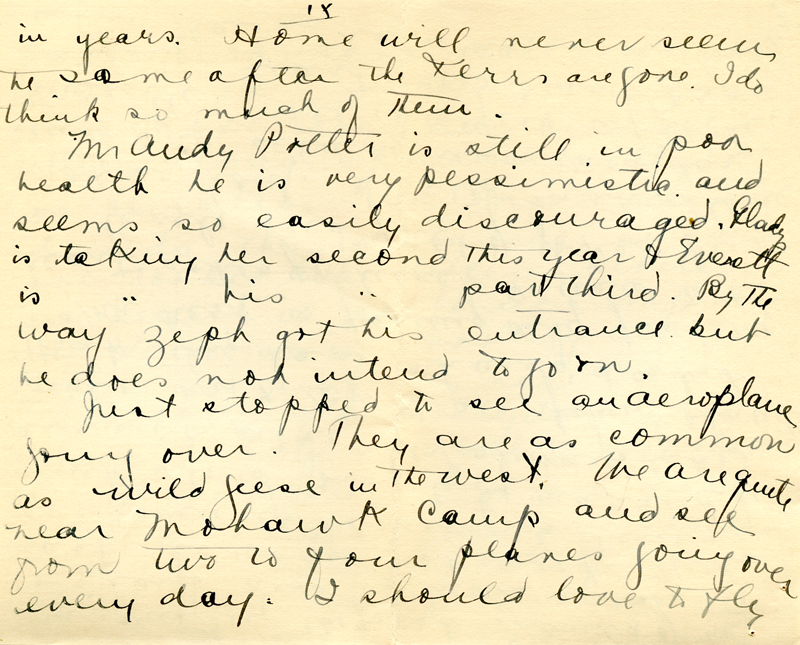 IX
in years. Home will never seem
he same after the Kerrs are gone. I do
think so much of them.
Mr Andy Potter is still in poor
health he is very pessimistic and
seems so easily discouraged. Glady
is taking her second this year & Everett
is " his " part third. By the
way Zeph got his entrance but
he does not intend to go on.
Just stopped to see an aeroplane
going over. They are as common
as wild geese in the west. We are quite
near Mohawk Camp and see
from two to four planes going over
every day. I should love to fly